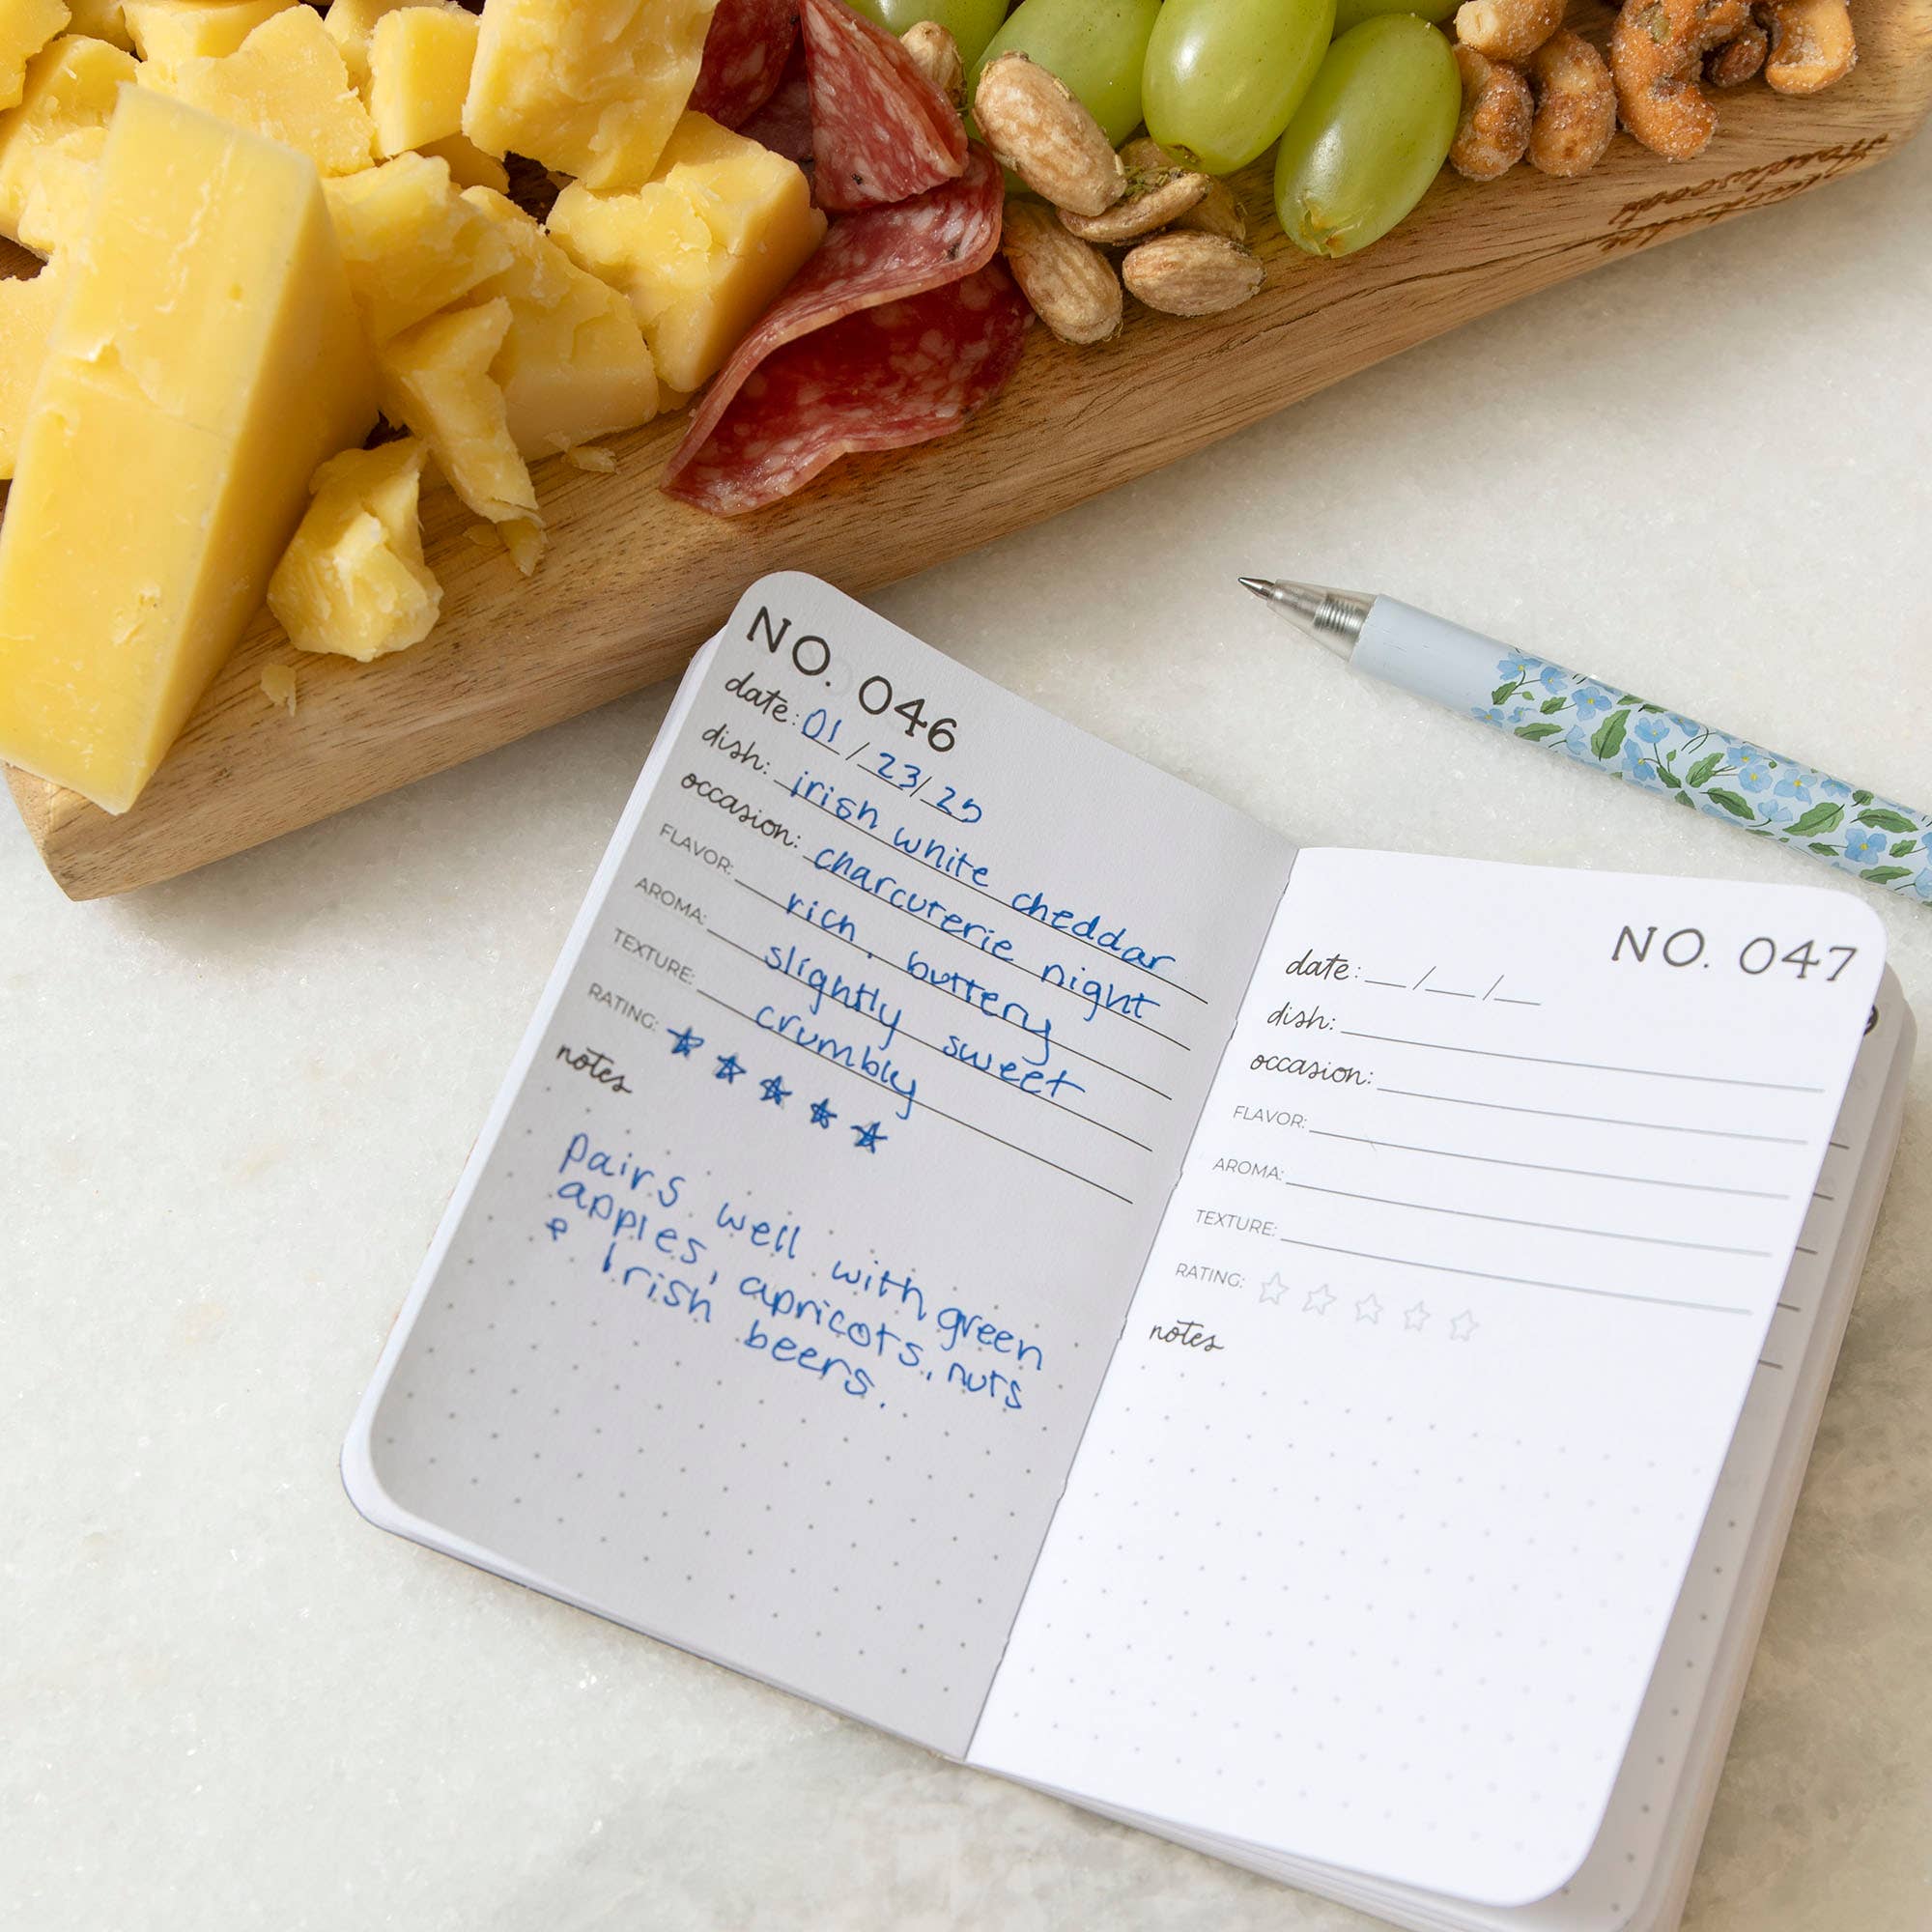 NO. 046
date: 01/23/25
dish: irish white cheddar
occasion: charcuterie night
FLAVOR: rich, buttery
AROMA: slightly sweet
TEXTURE: crumbly
RATING:
notes
pairs well with green
apples, apricots, nuts
& Irish beers.
NO. 047
date: __/__/__
dish:
occasion:
FLAVOR:
AROMA:
TEXTURE:
RATING:
notes